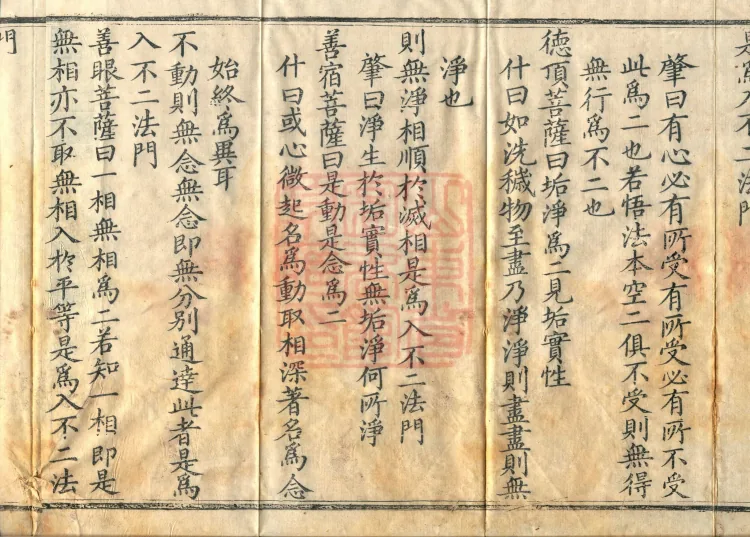 是爲入不二法門
肇曰有心必有所受有所受必有所不受
此爲二也若悟法本空二俱不受則無得
無行爲不二也
德頂菩薩曰垢淨爲二見垢實性
什曰如洗穢物至盡乃淨淨則盡盡則無
淨也
則無淨相順於滅相是爲入不二法門
肇曰淨生於垢實性無垢淨何所淨
善宿菩薩曰是動是念爲二
什曰或心微起名爲動取相深著名爲念
始終爲異耳
不動則無念無念即無分別通達此者是爲
入不二法門
善眼菩薩曰一相無相爲二若知一相即是
無相亦不取無相入於平等是爲入不二法
門